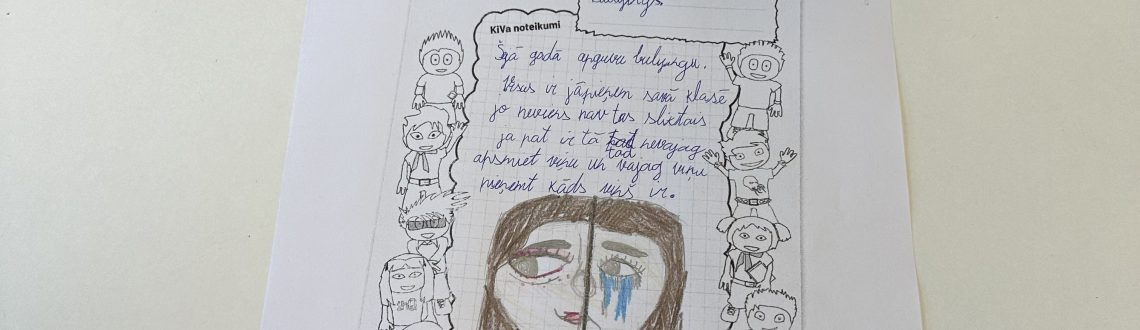 KiVa noteikumi
Šajā gadā apguvu bulyingu.
Visus ir jāpieņem savā klasē
jo neviens nav tas sliktais
ja pat ir tā tad nevajag
apsmiet viņu un vajag viņu
pieņemt kāds viņš ir.